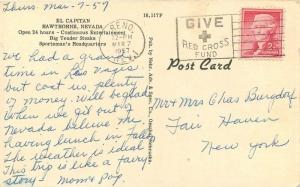 Thurs. Mar-7-57
EL CAPITAN
HAWTHORNE, NEVADA
Open 24 hours - Continuous Entertainment
Big Tender Steaks
Sportsman's Headquarters
18,117F
RENO
MAR 7
1957
GIVE
RED CROSS
FUND
2¢
Post Card
We had a grand
time in Las Vegas
but cost us plenty
of money. Will be glad
when we get out of
Nevada believe me
having lunch in
The weather is ideal
This trip is like a fairy
story - Mom & Pop.
Mr & Mrs Chas Burgdorf
Fair Haven
New York